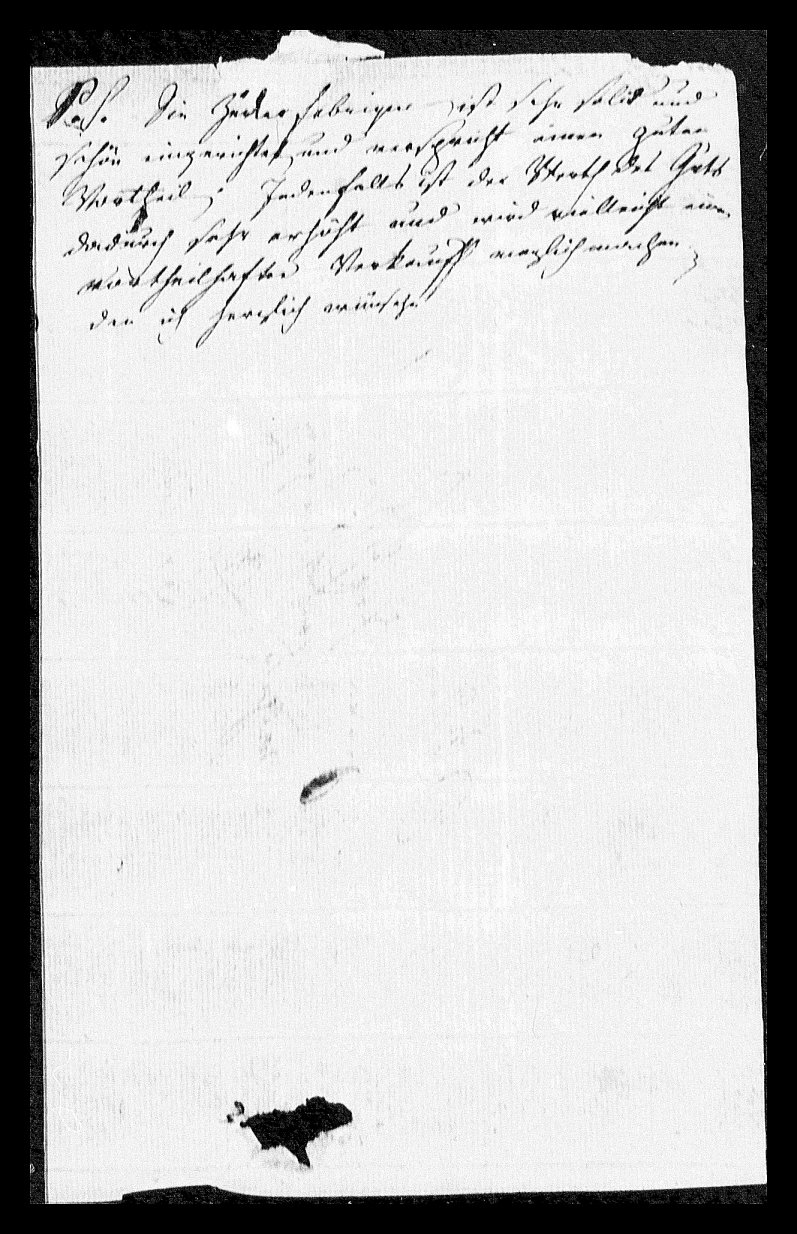 P. S. Die Zuckerfabrigen ist sehr solid und
schön eingerichtet und verspricht einen guten
Vortheil; Jedenfalls ist der Werth des Guts
dadurch sehr erhöht und wird vielleicht einen
vortheilhaften Verkauff möglich machen,
den ich herzlich wünsche